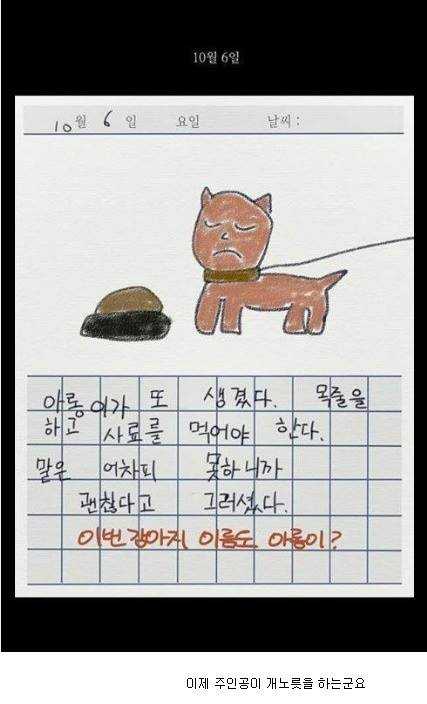 10월 6일
10월 6일 요일 날씨:
아롱이가 또 생겼다. 목줄을
하고 사료를 먹어야 한다.
말은 어차피 못하니까
괜찮다고 그러셨다.
이번 강아지 이름도 아롱이?
이제 주인공이 개노릇을 하는군요